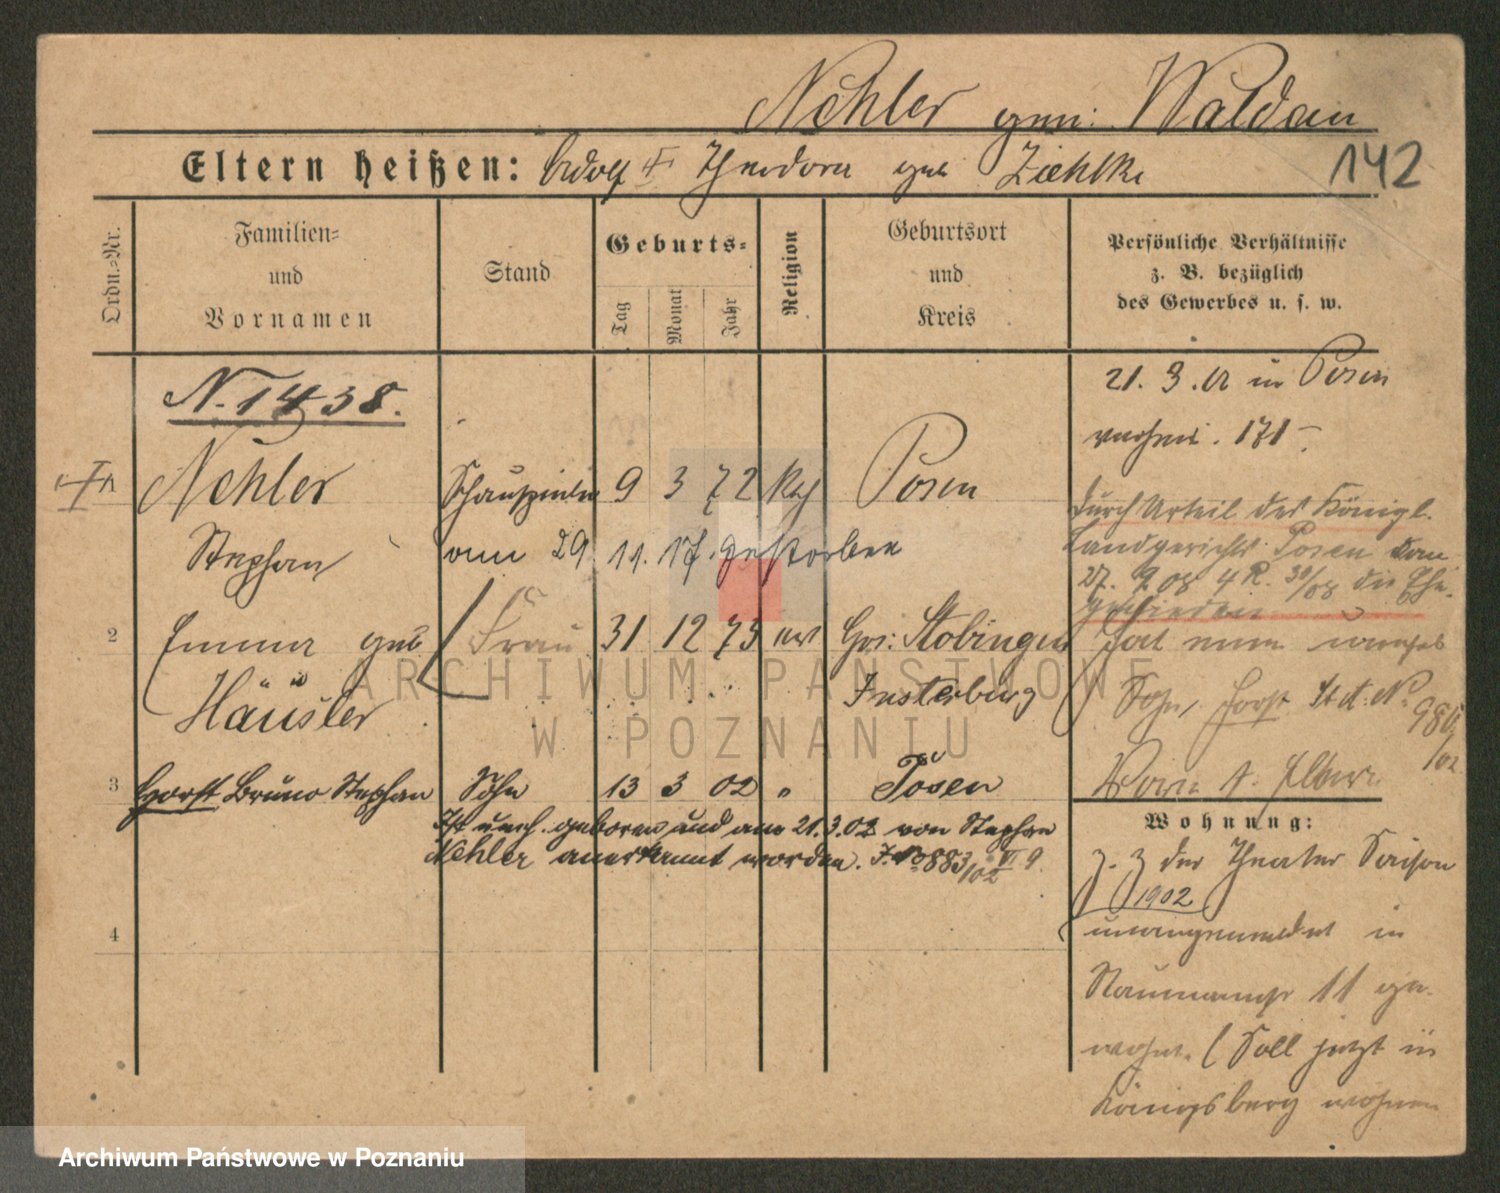 Nehler gen: Waldau
Eltern heißen: Adolf Theodora geb Ziehlke
142
Ordn.=Nr.
Familien=
und
Vornamen
Stand
Geburts=
Tag
Monat
Jahr
Religion
Geburtsort
und
Kreis
Persönliche Verhältnisse
z. B. bezüglich
des Gewerbes u. s. w.
N. 1438.
21. 3. in Posen
171
Nehler Schauspieler 9 3 72 Kath Posen
Stephan am 29. 11. 17. gestorben
durch Urteil des Königl.
Landgerichts Posen vom
27. 9. 08 4 R. 30/08 die Ehe
geschieden
2 Emma geb Frau 31 12 73 ev Gr: Stobingen
Häusler Insterburg
hat einen unehel
Sohn, Horst St. A. No. 986/02
3 Horst Bruno Stephan Sohn 13 3 02 " Posen
Ist unehl. geboren und am 21.3.02 von Stephan
Nehler anerkannt worden. J.No 883/02 VI 9.
Wohnung:
z. Z der Theater Saison
1902
unangemeldet in
Naumannstr 11 ge-
wohnt. (Soll jetzt in
Königsberg wohnen
4
ARCHIWUM PAŃSTWOWE
W POZNANIU
Archiwum Państwowe w Poznaniu